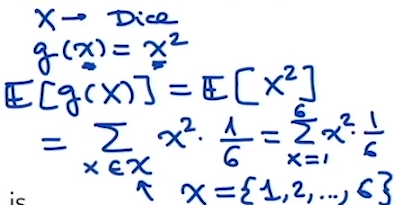 X → Dice
g(x) = x²
𝔼[g(X)] = 𝔼[X²]
= ∑_{x∈X} x² · 1/6 = ∑_{x=1}^{6} x² · 1/6
↑ X = {1,2,...,6}
is